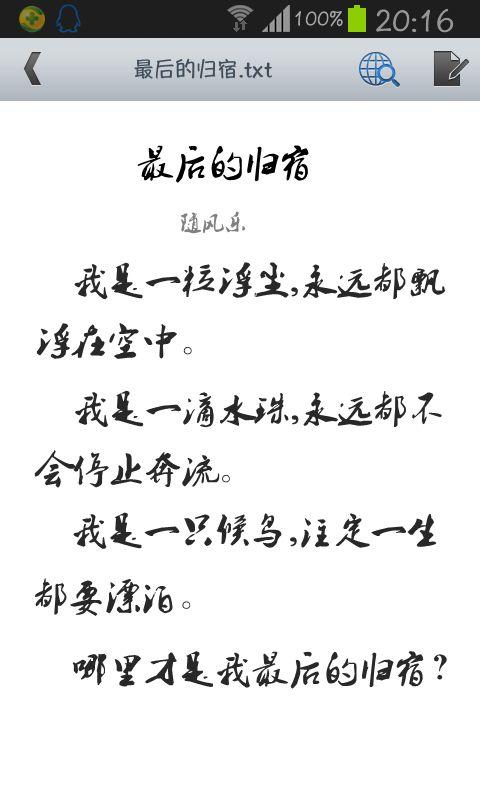 100% 20:16
最后的归宿.txt
最后的归宿
随风乐
我是一粒浮尘,永远都飘
浮在空中。
我是一滴水珠,永远都不
会停止奔流。
我是一只候鸟,注定一生
都要漂泊。
哪里才是我最后的归宿?